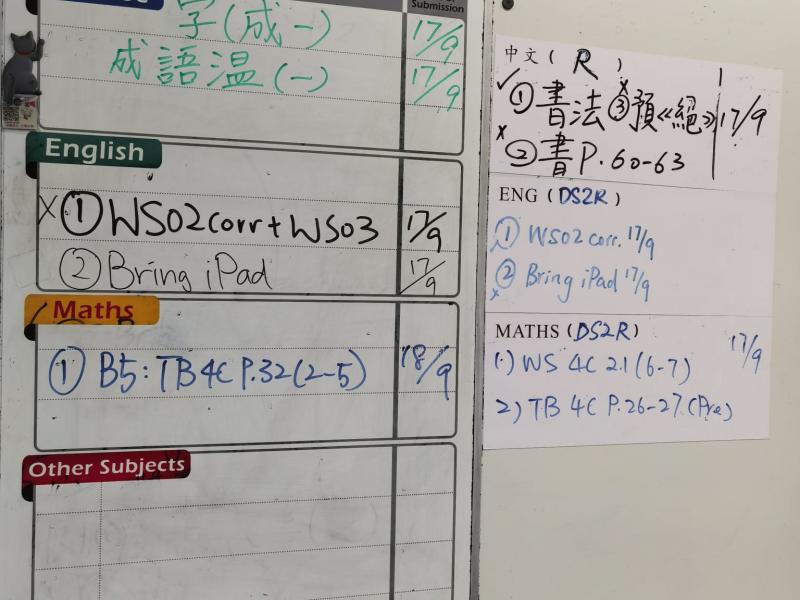 Submission
字(成一) 17/9
成語溫(一) 17/9
English
X ① WS02 corr + WS03 17/9
② Bring iPad 17/9
Maths
① B5: TB 4C P.32 (2-5) 18/9
Other Subjects
中文 ( R )
✓ ① 書法 x ③ 預《絕》 17/9
x ② 書 P. 60-63
ENG (DS2R)
① WS02 corr. 17/9
② Bring iPad 17/9
MATHS (DS2R) 17/9
1.) WS 4C 2.1 (6-7)
2) TB 4C P.26-27 (Pre)